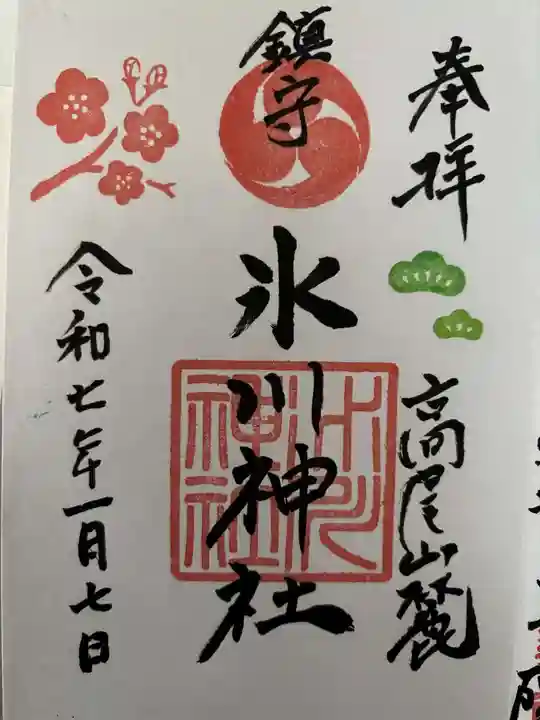 奉拝
高尾山麓
鎮守
氷川神社
氷川
神社
令和七年一月七日